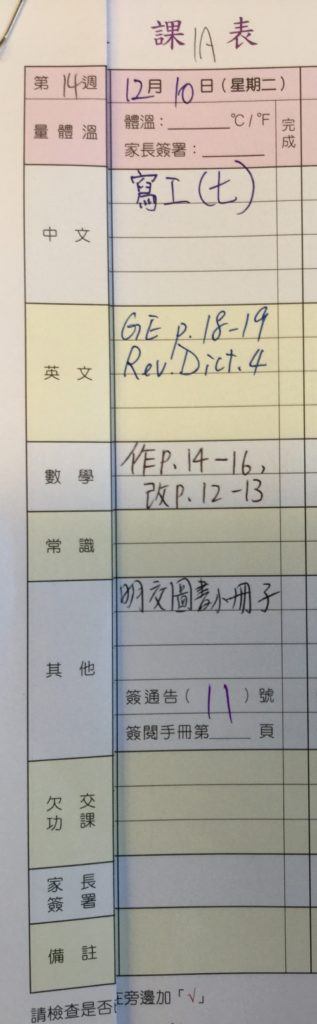 課1A表
第14週 12月10日(星期二)
量體溫 體溫:______℃/℉ 完成
家長簽署:______
中文 寫工(七)
英文 GE p.18-19
Rev. Dict. 4
數學 作P.14-16,
改P.12-13
常識
其他 明交圖書小冊子
簽通告( 11 )號
簽閱手冊第____頁
欠交功課
家長簽署
備註
請檢查是否 在旁邊加「√」